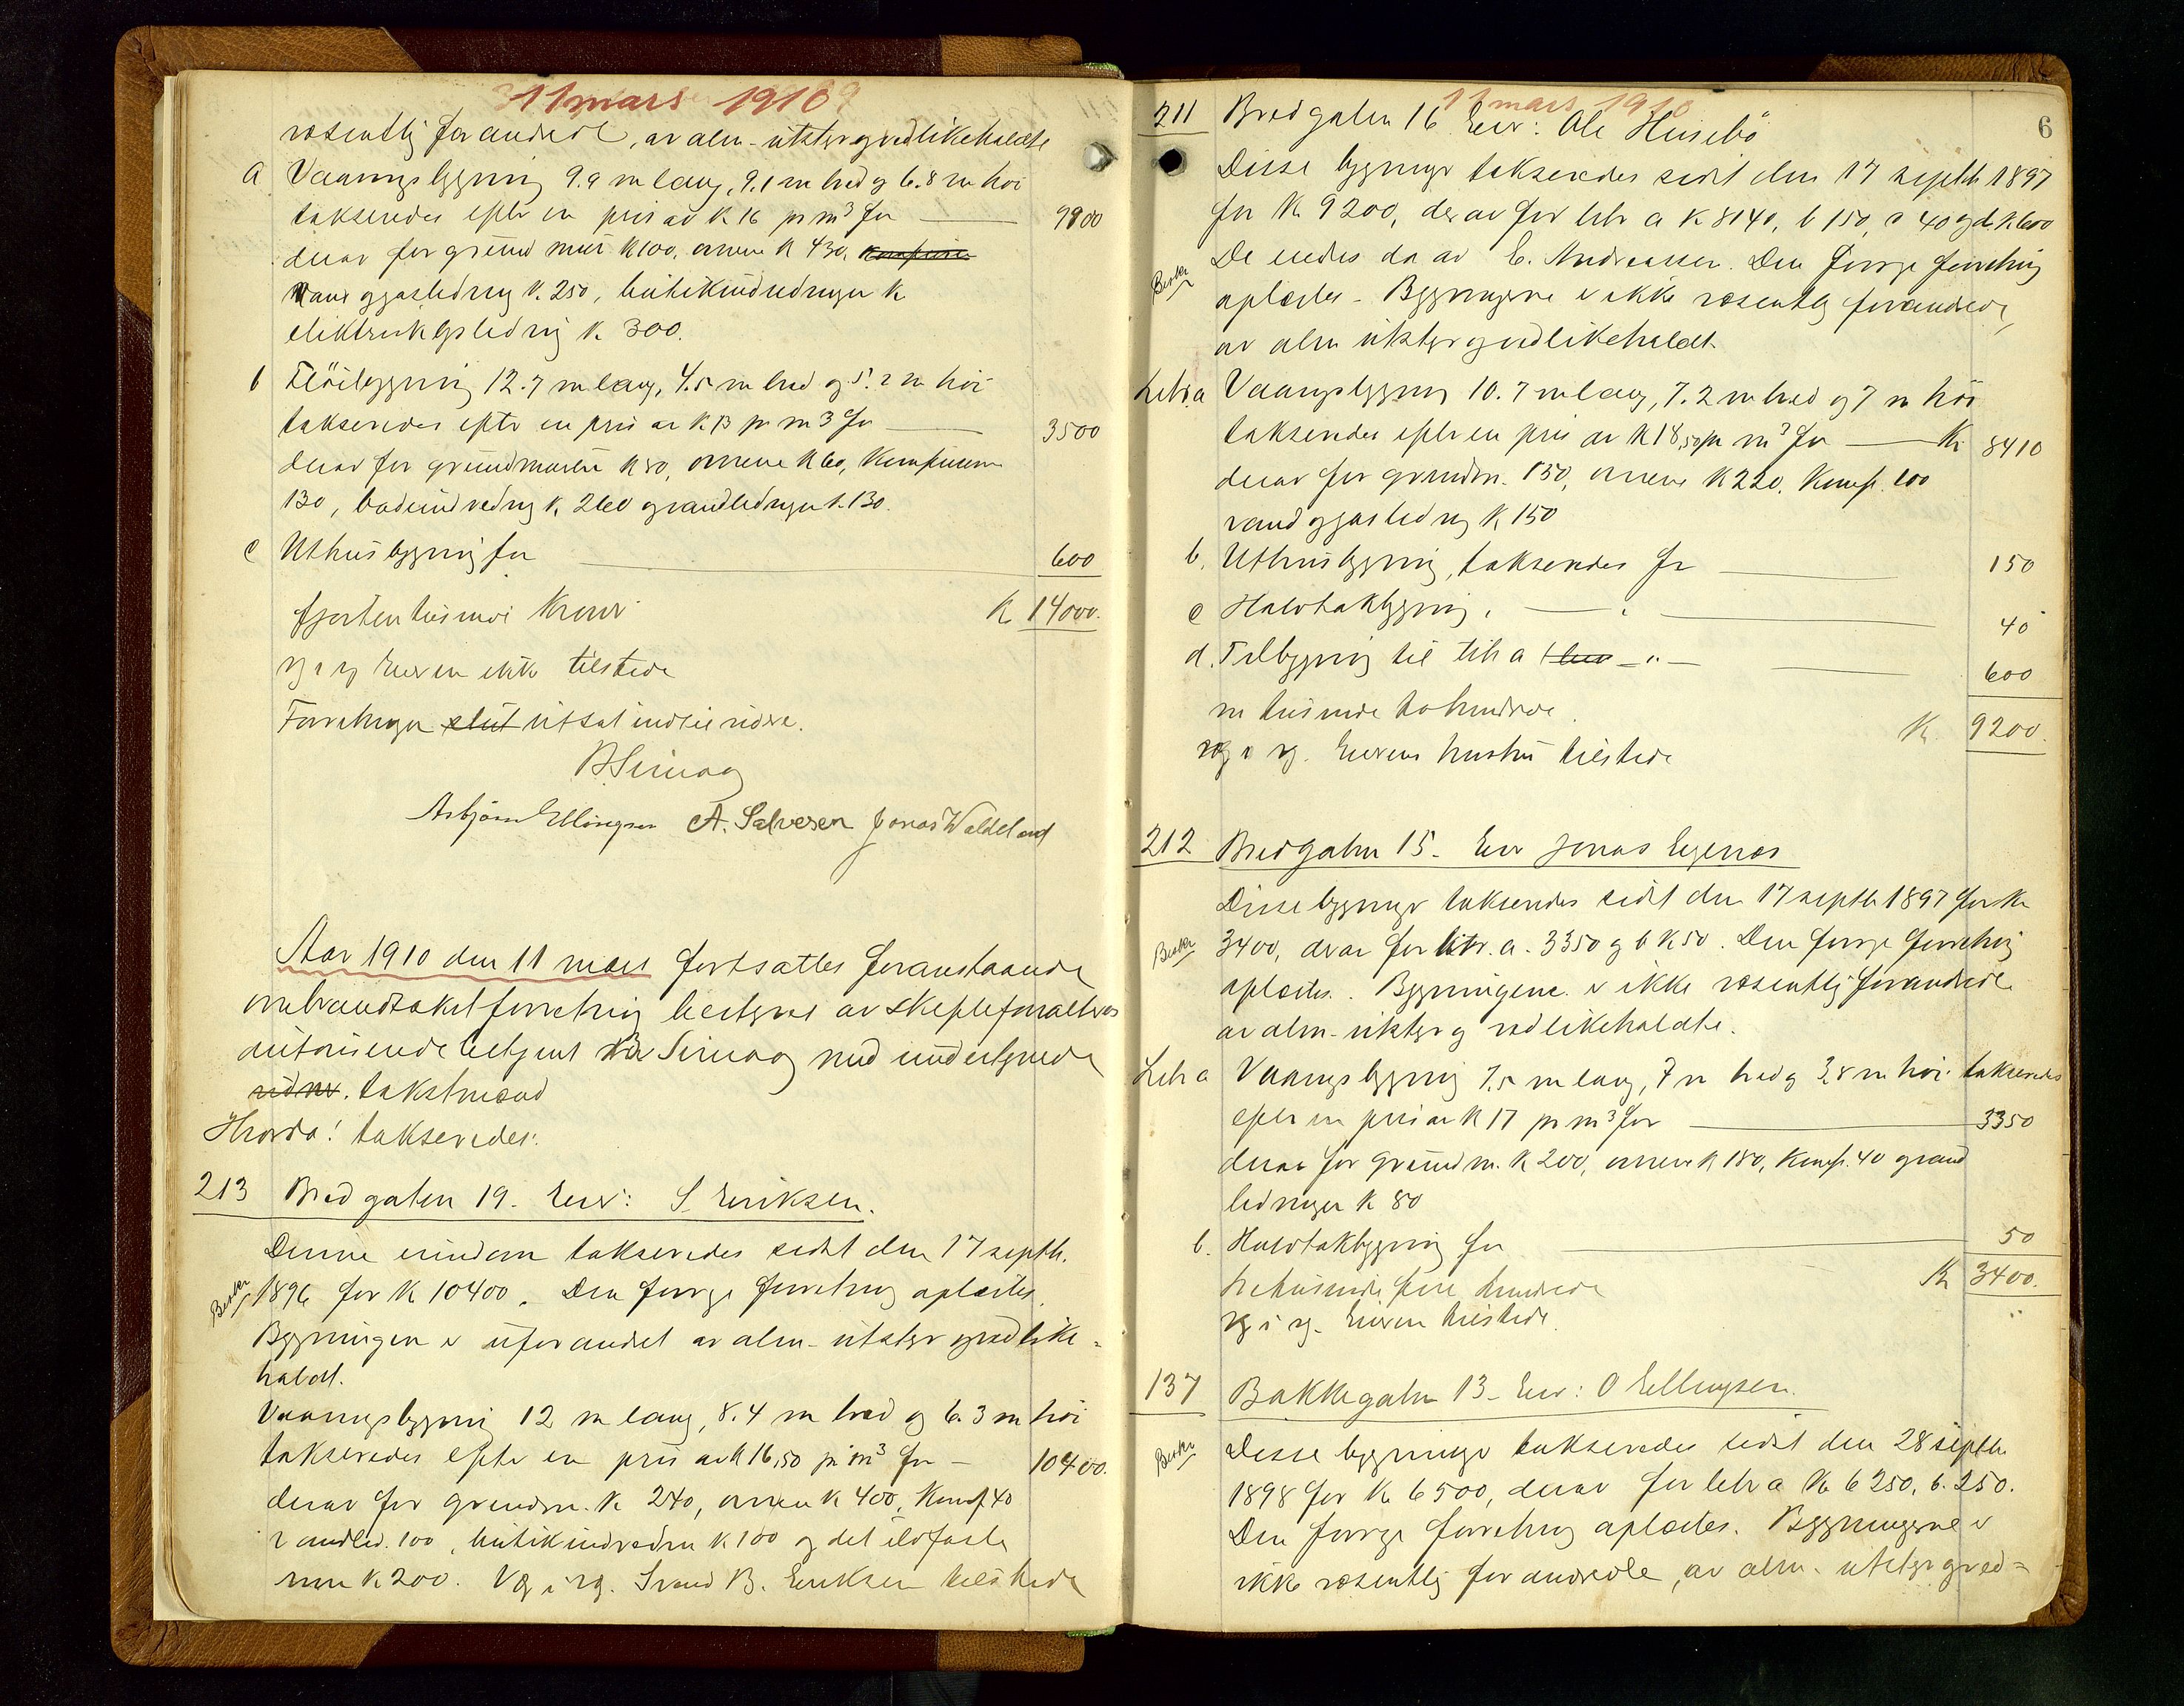 11 mars 1910
væsentlig forandrede, av alm. utstyr og vedlikeholdte
a Vaaningsbygning 9.9 m lang, 9.1 m bred og 6.8 m høi
takseredes efter en pris av K 16 pr m³ for 9900
derav for grundmur K 100, ovnene K 430, Komfurene
Vand og gasledning K. 250, butikindredninger K
elektrisk lysledning K 300.
b Fløibygning 12.7 m lang, 4.5 m bred og 5.2 m høi
takseredes efter en pris av K 13 pr m3 for 3500
derav for grundmuren K 50, ovnene K 60, Komfurerne
130, badeindredng K 260 og vandledningen K. 130.
c Uthusbygning for 600
fjorten tusinde Kroner K 14000.
vg i vg Eieren ikke tilstede
Forretningen slut utsat indtil videre.
B Sirevaag
Asbjørn Ellingsen A. Salvesen Jonas Waldeland
Aar 1910 den 11 mars fortsattes foranstaaende
ombrandtakstforretning bestyret av skifteforvalterens
autoriserede betjent B Sirevaag med undertegnede
vidner. takstmænd
Hvorda! takseredes:
213 Bredgaten 19. Eier: S. Eriksen.
Denne eiendom takseredes sidst den 17 septb.
1896 for K 10400. Den forrige forretning oplæstes.
Bygningen er uforandret av alm. utstyr og vedlike-
holdt.
Vaaningsbygning 12 m lang, 8.4 m bred og 6.3 m høi
takseredes efter en pris av K 16,50 pr m³ for - 10400.
derav for grundm. K 240, ovnene K 400, Komf. 40
vandled. 100, butikindredn K 100 og det ildfaste
rum K 200. Vg i vg. Svend B. Eriksen tilstede
6
11 mars 1910
211 Bredgaten 16 Eier: Ole Husebø
Disse bygninger takseredes sidst den 17 septbr 1897
for K 9200, derav for litr a K 8140, b 150, c 40 og d. K 600
De eiedes da av E. Andreassen. Den forrige forretning
oplæstes - Bygningerne er ikke væsentlig forandrede,
av alm utstyr og vedlikeholdt.
Litr. a Vaaningsbygning 10.7 m lang, 7.2 m bred og 7 m høi
takseredes efter en pris av K 18,50 pr m³ for K 8410
derav for grundm. 150, ovnene K 220. Komf. 100
vand og gasledning K 150
b. Uthusbygning, takseredes for 150
c Halvtakbygning, 40
d. Tilbygning til litr a 600
ni tusinde tohundrede. K. 9200.
vg i vg. Eierens hustru tilstede
212 Bredgaten 15. Eier Jonas Egenæs
Disse bygninger takseredes sidst den 17 septbr 1897 for K
3400, derav for litr. a. 3350 og b K 50. Den forrige forretning
oplæstes. Bygningene er ikke væsentlig forandrede
av alm. utstyr og vedlikeholdte.
Litr a Vaaningsbygning 7.5 m lang, 7 m bred og 3,8 m høi takseredes
efter en pris av K 17 pr m³ for 3350
derav for grundm. K 200, ovnene K 180, Komf. 40 og vand
ledningen K 80
b. Halvtakbygning for 50
tretusinde fire hundrede K 3400.
vg i vg. Eieren tilstede.
137 Bakkegaten 13. Eier: O Ellingsen.
Disse bygninger takseredes sidst den 28 septbr
1898 for K 6500, derav for litr a K 6250, b. 250.
Den forrige forretning oplæstes. Bygningerne er
ikke væsentlig forandrede, av alm. utstyr og ved-